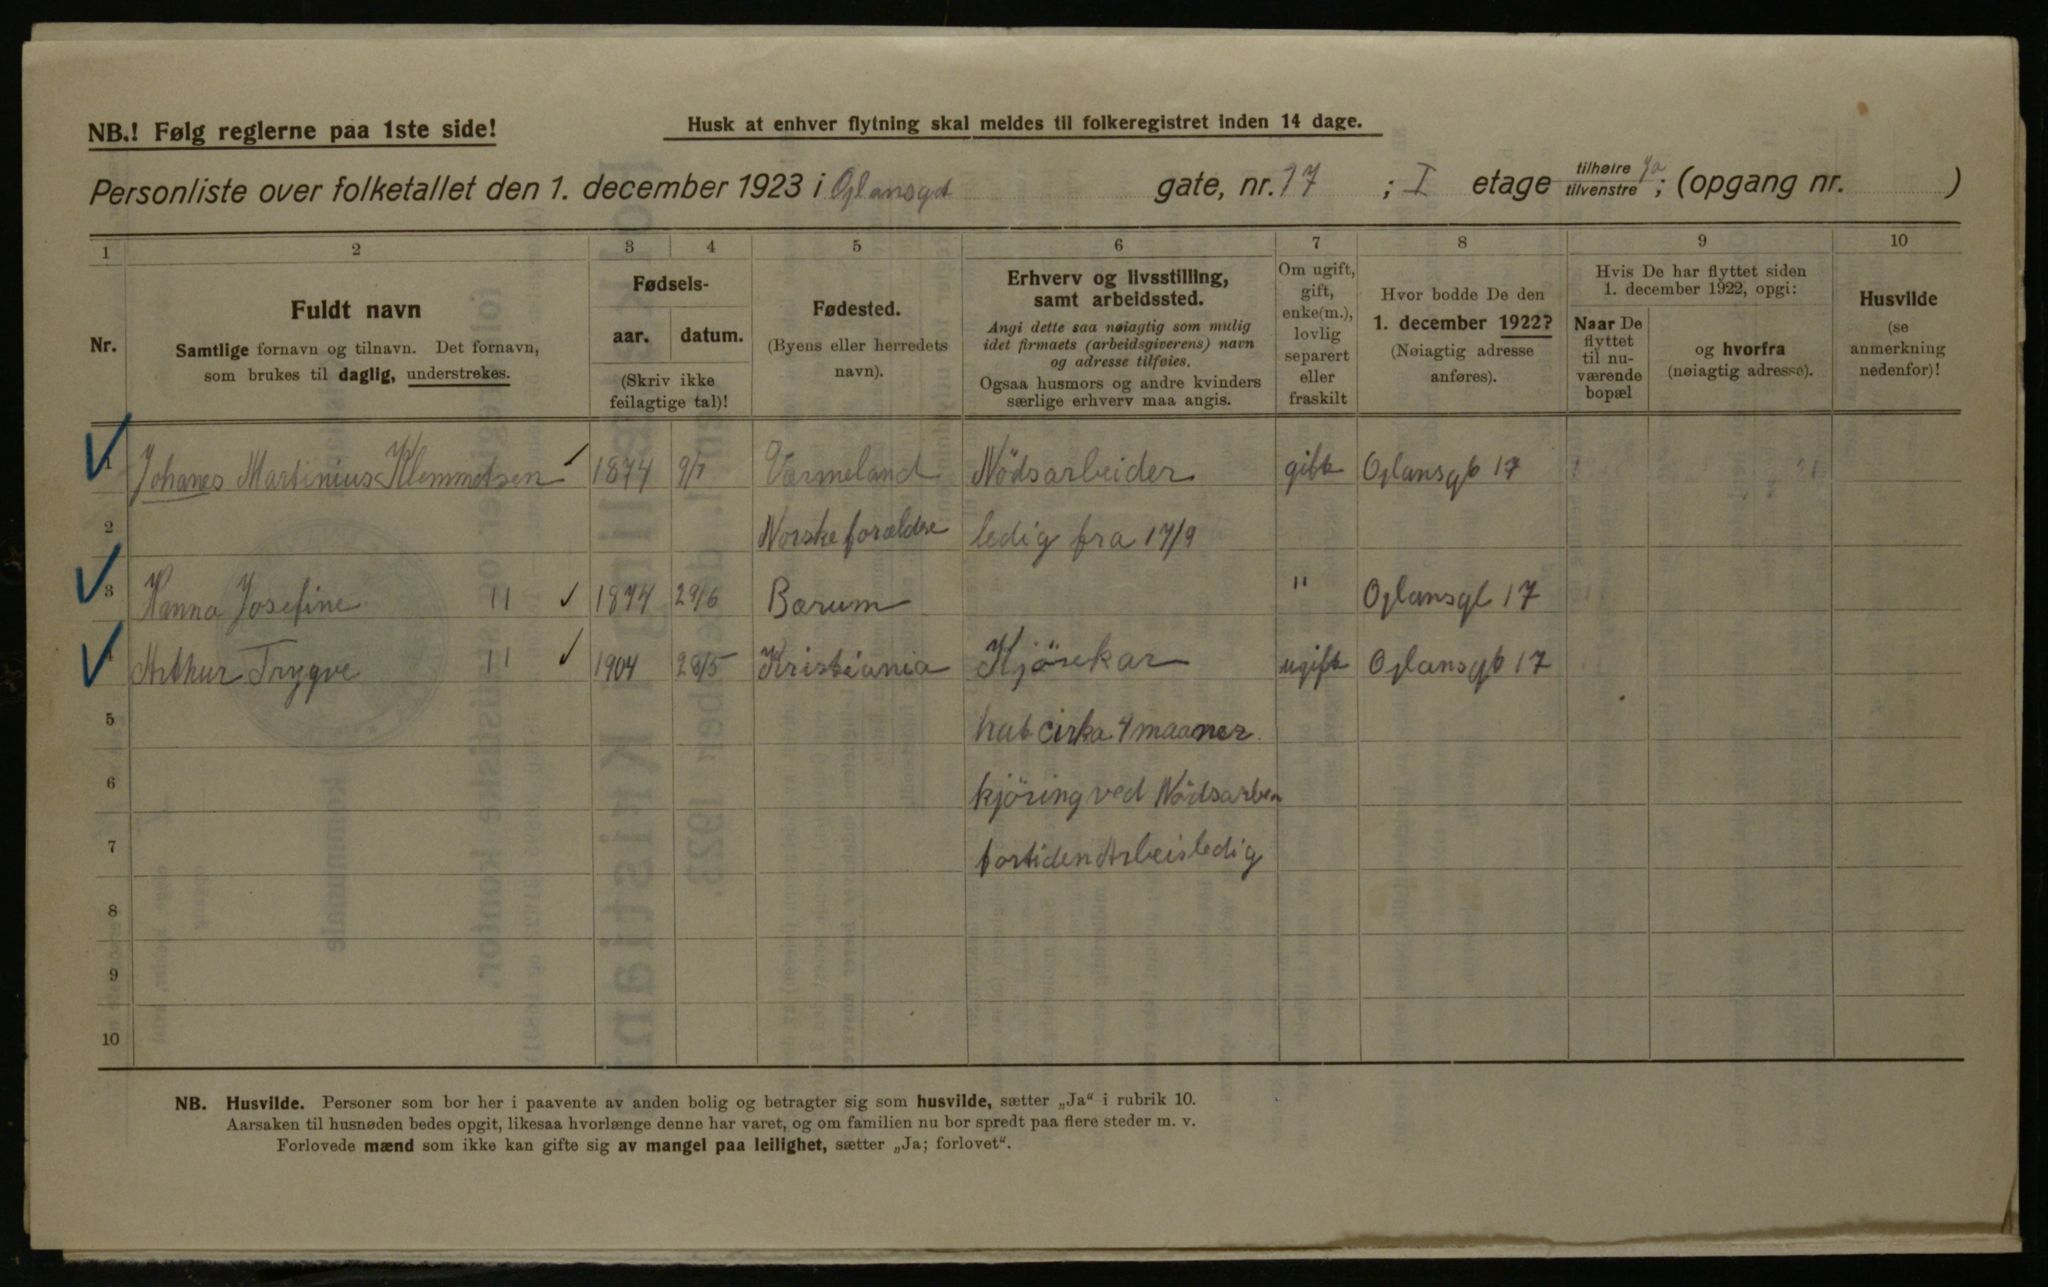 NB.! Følg reglerne paa 1ste side!
Husk at enhver flytning skal meldes til folkeregistret inden 14 dage.
Personliste over folketallet den 1. december 1923 i Oplansgt gate, nr. 17 ; I etage tilhøire tilvenstre Ja ; (opgang nr. )
1 2 3 4 5 6 7 8 9 10
Nr.
Fuldt navn
Samtlige fornavn og tilnavn. Det fornavn,
som brukes til daglig, understrekes.
Fødsels-
aar. datum.
(Skriv ikke
feilagtige tal)!
Fødested.
(Byens eller herredets
navn).
Erhverv og livsstilling,
samt arbeidssted.
Angi dette saa nøiagtig som mulig
idet firmaets (arbeidsgiverens) navn
og adresse tilføies.
Ogsaa husmors og andre kvinders
særlige erhverv maa angis.
Om ugift,
gift,
enke(m.),
lovlig
separert
eller
fraskilt
Hvor bodde De den
1. december 1922?
(Nøiagtig adresse
anføres).
Hvis De har flyttet siden
1. december 1922, opgi:
Naar De
flyttet
til nu-
værende
bopæl
og hvorfra
(nøiagtig adresse).
Husvilde
(se
anmerkning
nedenfor)!
1 Johanes Martinius Klemmetsen 1874 9/7 Værmeland Nödsarbeider gift Oplansgt 17
2 Norske forældre ledig fra 17/9
3 Hanna Josefine " 1874 29/6 Bærum " Oplansgt 17
4 Arthur Trygve " 1904 28/5 Kristiania Kjörekar ugift Oplansgt 17
5 hat cirka 4 maaner
6 kjöring ved Nödsarben
7 fortiden Arbeisledig
8
9
10
NB. Husvilde. Personer som bor her i paavente av anden bolig og betragter sig som husvilde, sætter „Ja“ i rubrik 10.
Aarsaken til husnøden bedes opgit, likesaa hvorlænge denne har varet, og om familien nu bor spredt paa flere steder m. v.
Forlovede mænd som ikke kan gifte sig av mangel paa leilighet, sætter „Ja; forlovet“.